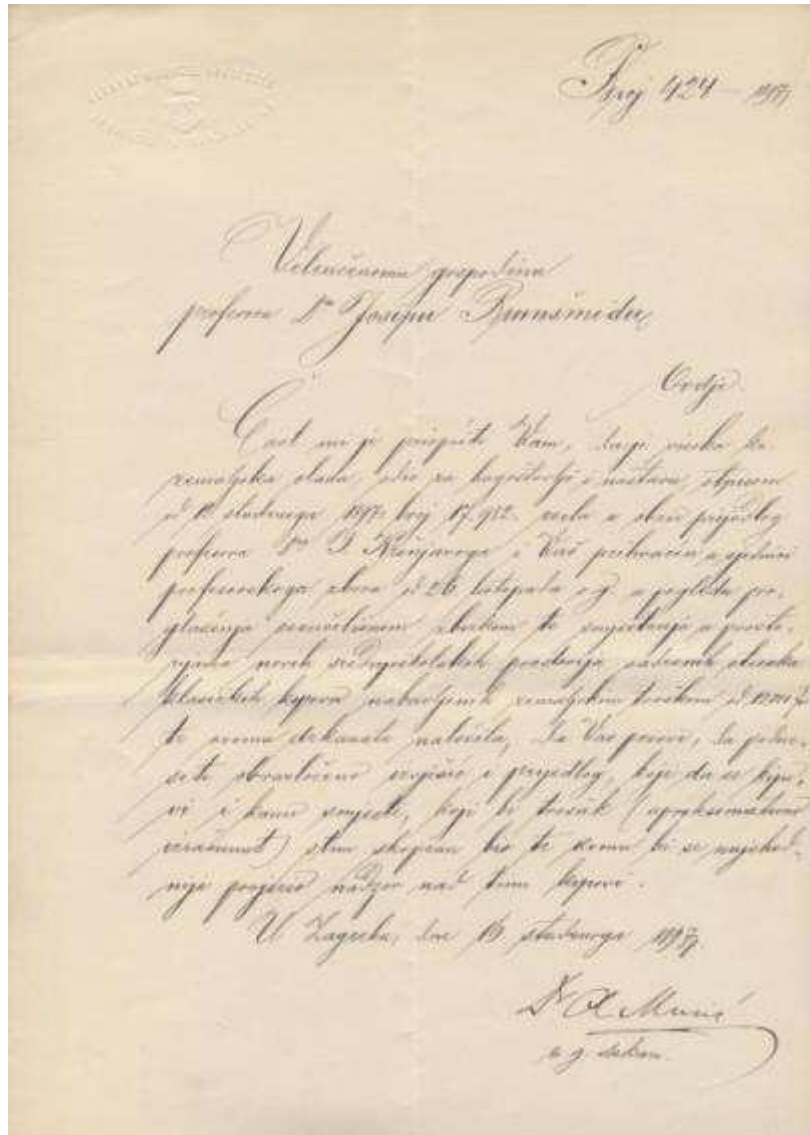 Broj 424 – 1897
Veleučenomu gospodinu
profesoru Dru Josipu Brunšmidu
Ovdje.
Čast mi je priopćiti Vam, da je visoka kr.
zemaljska vlada, odio za bogoštovlje i nastavu otpisom
od 12. studenoga 1897. broj 17.912 uzela u obzir prijedlog
profesora Dra I. Kršnjavoga i Vaš prihvaćen u sjednici
profesorskoga zbora od 26. listopada o.g. u pogledu pro-
glašenja sveučilišnom zbirkom te smještenja u prosto-
rijama novih srednjoškolskih sadrenih otisaka
klasičkih kipova nabavljenih zemaljskim troškom od
te ovomu dekanatu naložila, da Vas pozove, da podne-
sete obrazloženo izvješće i prijedlog, koji da se kipo-
vi i kamo smjeste, koji bi trošak (aproksimativno
) stim skopčan bio te komu bi se najshod-
nije povjerio nadzor nad timi kipovi.
U Zagrebu, dne 16. studenoga 1897.
Dr A Musić
o. g. dekan.